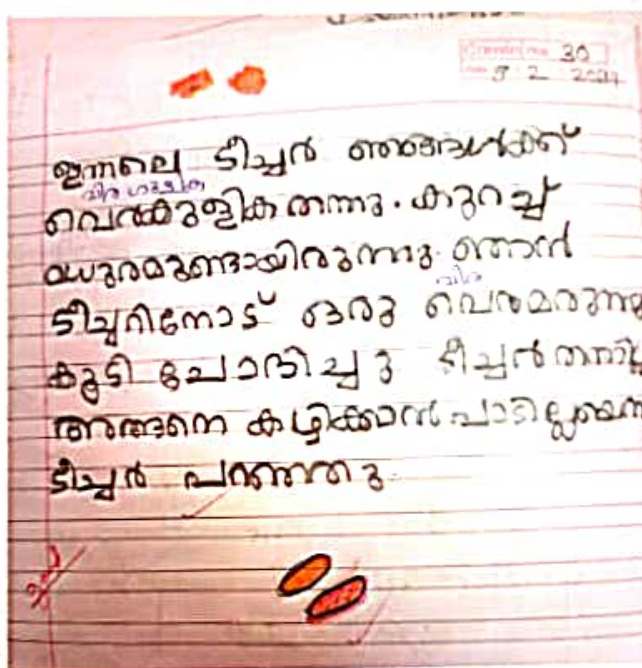 30
9 2
ഇന്നലെ ടീച്ചർ ഞങ്ങൾക്ക്
വിര ഗുളിക
വെരകുളിക തന്നു. കുറച്ച്
മധുരമുണ്ടായിരുന്നു. ഞാൻ
വിര
ടീച്ചറിനോട് ഒരു വെരമരുന്നു
കൂടി ചോദിച്ചു ടീച്ചർ തന്നില്ല
അങ്ങനെ കഴിക്കാൻ പാടില്ലയെന്ന
ടീച്ചർ പറഞ്ഞു.